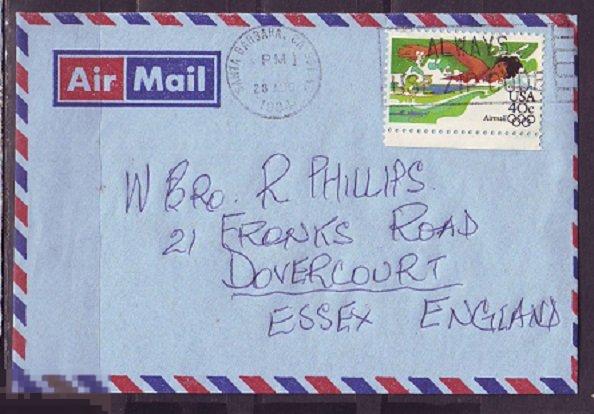 SANTA BARBARA, CA
PM
28 AUG
1984
ALWAYS
USE ZIP CODE
Air Mail
USA
40c
Airmail
W BRO. R PHILLIPS
21 FRONKS ROAD
DOVERCOURT
ESSEX ENGLAND